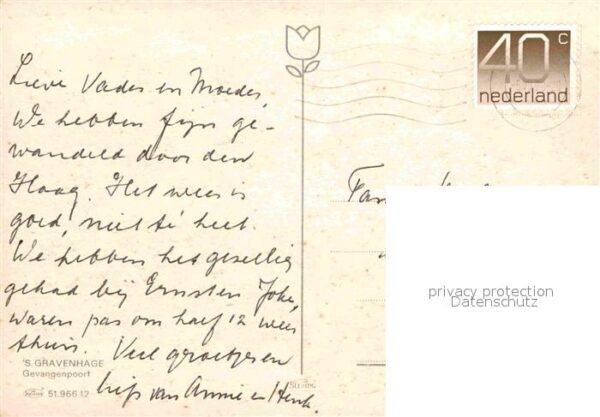 Lieve Vader en Moeder,
We hebben fijn ge-
wandeld door den
Haag. Het weer is
goed, niet té heet.
We hebben het gezellig
gehad bij Ernst en Joke,
waren pas om half 12 weer
thuis. Veel groetjes en
liefs van Annie en Henk.
'S GRAVENHAGE
Gevangenpoort
51.966.12
40 c
nederland
Fam.
privacy protection
Datenschutz